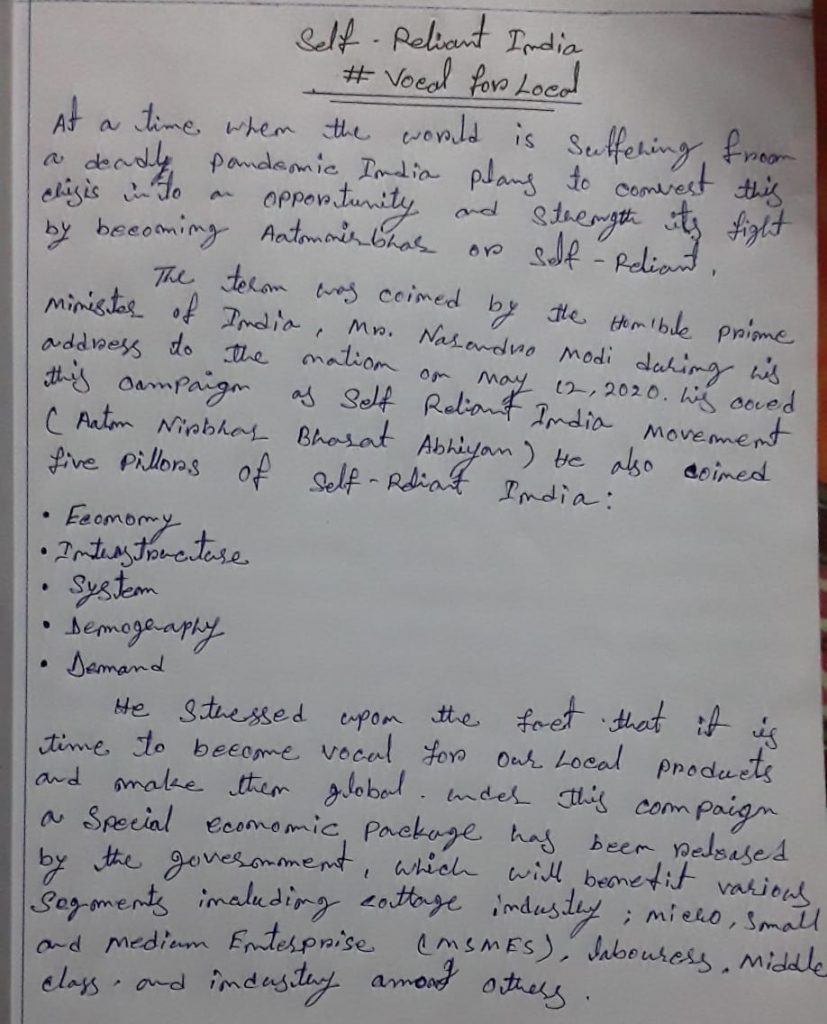 Self - Reliant India
# Vocal for Local
At a time when the world is suffering from
a deadly pandemic India plans to convert this
crisis into an opportunity and strength its fight
by becoming Aatmanirbhar or Self - Reliant.
The term was coined by the Hon'ble prime
Minister of India, Mr. Narendra Modi during his
address to the nation on May 12, 2020. his
this campaign as Self Reliant India Movement
( Aatm Nirbhar Bharat Abhiyan ) He also coined
five Pillors of Self - Reliant India :
• Economy
• Intrastructure
• System
• Demography
• Demand
He stressed upon the fact that it is
time to become vocal for our Local products
and make them global. under this campaign
a Special economic package has been released
by the government, which will benefit various
Segments including cottage industry ; micro, small
and medium Enterprise (MSMES), labourers, Middle
class, and industry among others.